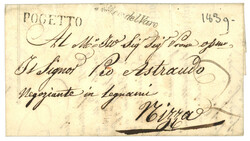 POGETTO
1839
Al Mto Illre Sig. Sig. Pron. Ossmo
Il Signor Pio Astraudo
Negoziante in Legnami
Nizza